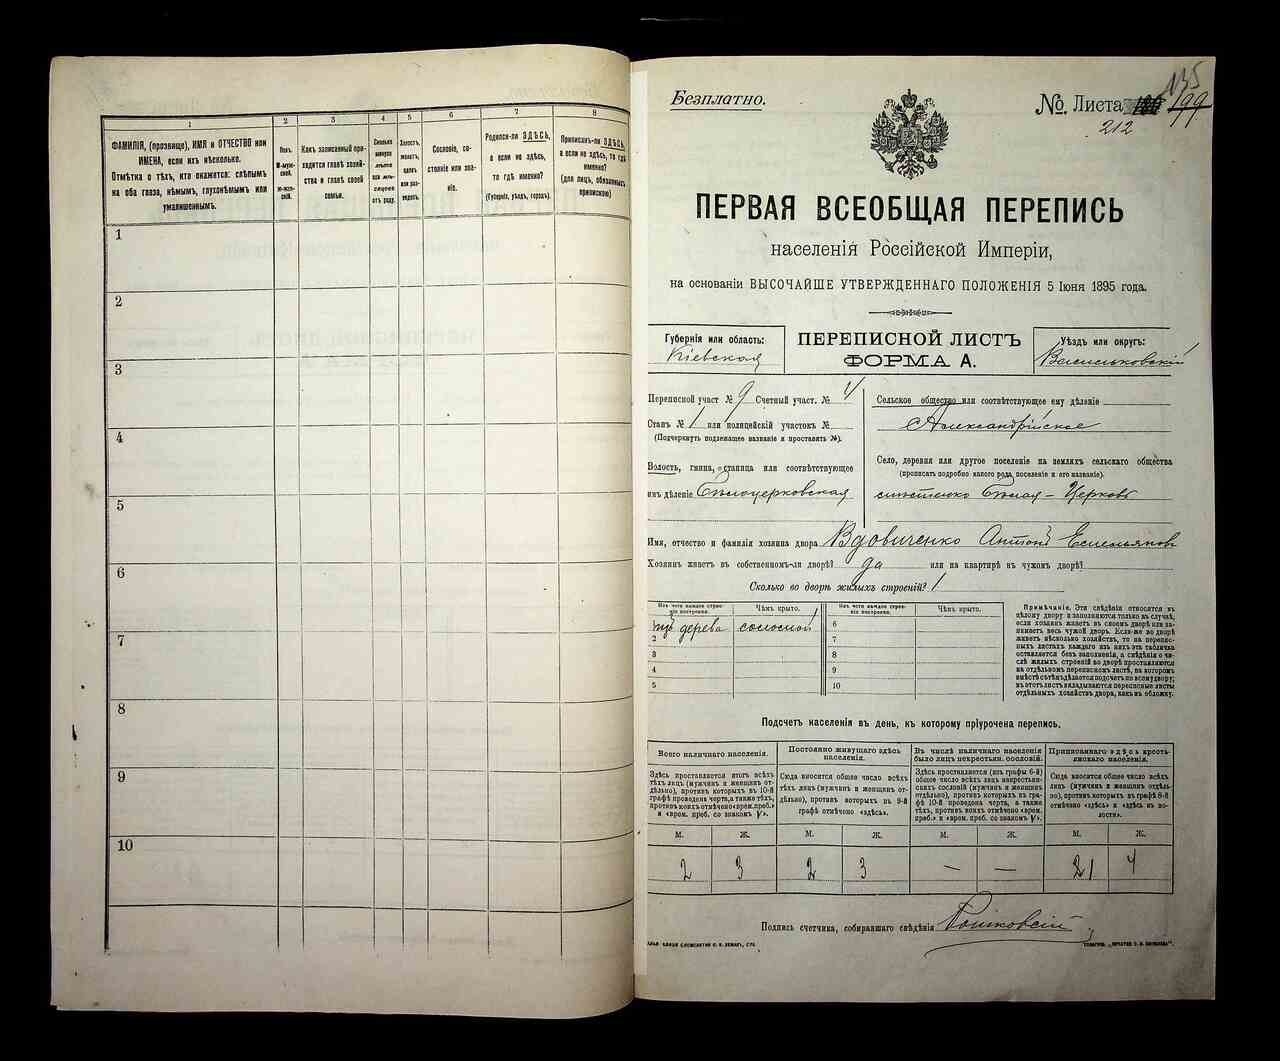 1
2
3
4
5
6
7
8
ФАМИЛІЯ, (прозвище), ИМЯ и ОТЧЕСТВО или
ИМЕНА, если ихъ нѣсколько.
Отмѣтка о тѣхъ, кто окажется: слѣпымъ
на оба глаза, нѣмымъ, глухонѣмымъ или
умалишеннымъ.
Полъ.
М-муж-
ской.
Ж-жен-
скій.
Какъ записанный при-
ходится главѣ хозяй-
ства и главѣ своей
семьи.
Сколько
минуло
лѣтъ
или мѣ-
сяцевъ
отъ роду.
Холостъ,
женатъ,
вдовъ
или раз-
веденъ.
Сословіе, со-
стояніе или зва-
ніе.
Родился-ли ЗДѢСЬ,
а если не здѣсь,
то гдѣ именно?
(Губернія, уѣздъ, городъ).
Приписанъ-ли ЗДѢСЬ,
а если не здѣсь, то гдѣ
именно?
(для лицъ, обязанныхъ
припискою)
1
2
3
4
5
6
7
8
9
10
Безплатно.
135
№ Листа 199
212
ПЕРВАЯ ВСЕОБЩАЯ ПЕРЕПИСЬ
населенія Россійской Имперіи,
на основаніи ВЫСОЧАЙШЕ УТВЕРЖДЕННАГО ПОЛОЖЕНІЯ 5 Іюня 1895 года.
Губернія или область:
Кіевская
ПЕРЕПИСНОЙ ЛИСТЪ
ФОРМА А.
Уѣздъ или округъ:
Васильковскій
Переписной участ № 9 Счетный участ. № 4
Станъ № 1 или полицейскій участокъ №
(Подчеркнуть подлежащее названіе и проставить №).
Волость, гмина, станица или соотвѣтствующее
имъ дѣленіе Бѣлоцерковская
Сельское общество или соотвѣтствующее ему дѣленіе
Александрійское
Село, деревня или другое поселеніе на земляхъ сельскаго общества
(прописать подробно какого рода, поселеніе и его названіе).
мѣстечко Бѣлая-Церковь
Имя, отчество и фамилія хозяина двора Вдовиченко Антонъ Емельяновъ
Хозяинъ живетъ въ собственномъ-ли дворѣ? да или на квартирѣ въ чужомъ дворѣ?
Сколько во дворѣ жилыхъ строеній? 1
Изъ чего каждое строе-
ніе построено.
Чѣмъ крыто.
Изъ чего каждое строе-
ніе построено.
Чѣмъ крыто.
изъ дерева соломой
2
3
4
5
6
7
8
9
10
Примѣчаніе. Эти свѣдѣнія относятся къ
цѣлому двору и заполняются только въ случаѣ,
если хозяинъ живетъ въ своемъ дворѣ или за-
нимаетъ весь чужой дворъ. Если-же во дворѣ
живетъ нѣсколько хозяйствъ, то на перепис-
ныхъ листахъ каждаго изъ нихъ эта табличка
оставляется безъ заполненія, а свѣдѣнія о чи-
слѣ жилыхъ строеній во дворѣ проставляются
на отдѣльномъ переписномъ листѣ, на которомъ
вмѣстѣ съ тѣмъ дѣлается подсчетъ по всему двору;
въ этотъ листъ вкладываются переписные листы
отдѣльныхъ хозяйствъ двора, какъ въ обложку.
Подсчетъ населенія въ день, къ которому пріурочена перепись.
Всего наличнаго населенія.
Постоянно живущаго здѣсь
населенія.
Въ числѣ наличнаго населенія
было лицъ некрестьян. сословій.
Приписаннаго здѣсь кресть-
янскаго населенія.
Здѣсь проставляется итогъ всѣхъ
тѣхъ лицъ (мужчинъ и женщинъ от-
дѣльно), противъ которыхъ въ 10-й
графѣ проведена черта, а также тѣхъ,
противъ коихъ отмѣчено «врем. преб.»
и «врем. преб. со знакомъ V».
Сюда вносится общее число всѣхъ
тѣхъ лицъ (мужчинъ и женщинъ от-
дѣльно), противъ которыхъ въ 9-й
графѣ отмѣчено «здѣсь».
Здѣсь проставляется (изъ графы 6-й)
общее число всѣхъ лицъ некрестьян-
скихъ сословій (мужчинъ и женщинъ
отдѣльно), противъ которыхъ въ гра-
фѣ 10-й проведена черта, а также
тѣхъ, противъ коихъ отмѣчено «врем.
преб.» и «врем. преб. со знакомъ V».
Сюда вносится общее число всѣхъ
лицъ (мужчинъ и женщинъ отдѣль-
но), противъ которыхъ въ графѣ 8-й
отмѣчено «здѣсь» и «здѣсь въ во-
лости».
М. Ж. М. Ж. М. Ж. М. Ж.
2 3 2 3 — — 2 4
Подпись счетчика, собиравшаго свѣдѣнія